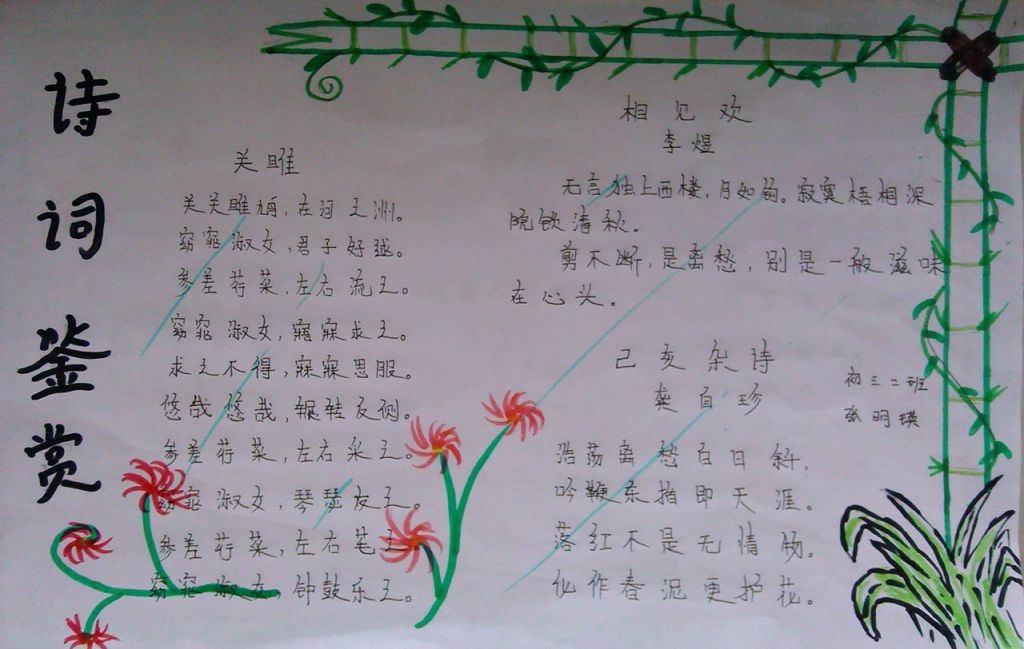 诗词鉴赏
关雎
关关雎鸠,在河之洲。
窈窕淑女,君子好逑。
参差荇菜,左右流之。
窈窕淑女,寤寐求之。
求之不得,寤寐思服。
悠哉悠哉,辗转反侧。
参差荇菜,左右采之。
窈窕淑女,琴瑟友之。
参差荇菜,左右芼之。
窈窕淑女,钟鼓乐之。
相见欢
李煜
无言独上西楼,月如钩。寂寞梧桐深
院锁清秋.
剪不断,是离愁,别是一般滋味
在心头。
己亥杂诗
龚自珍
浩荡离愁白日斜.
吟鞭东指即天涯。
落红不是无情物。
化作春泥更护花。
初三二班
张明瑛